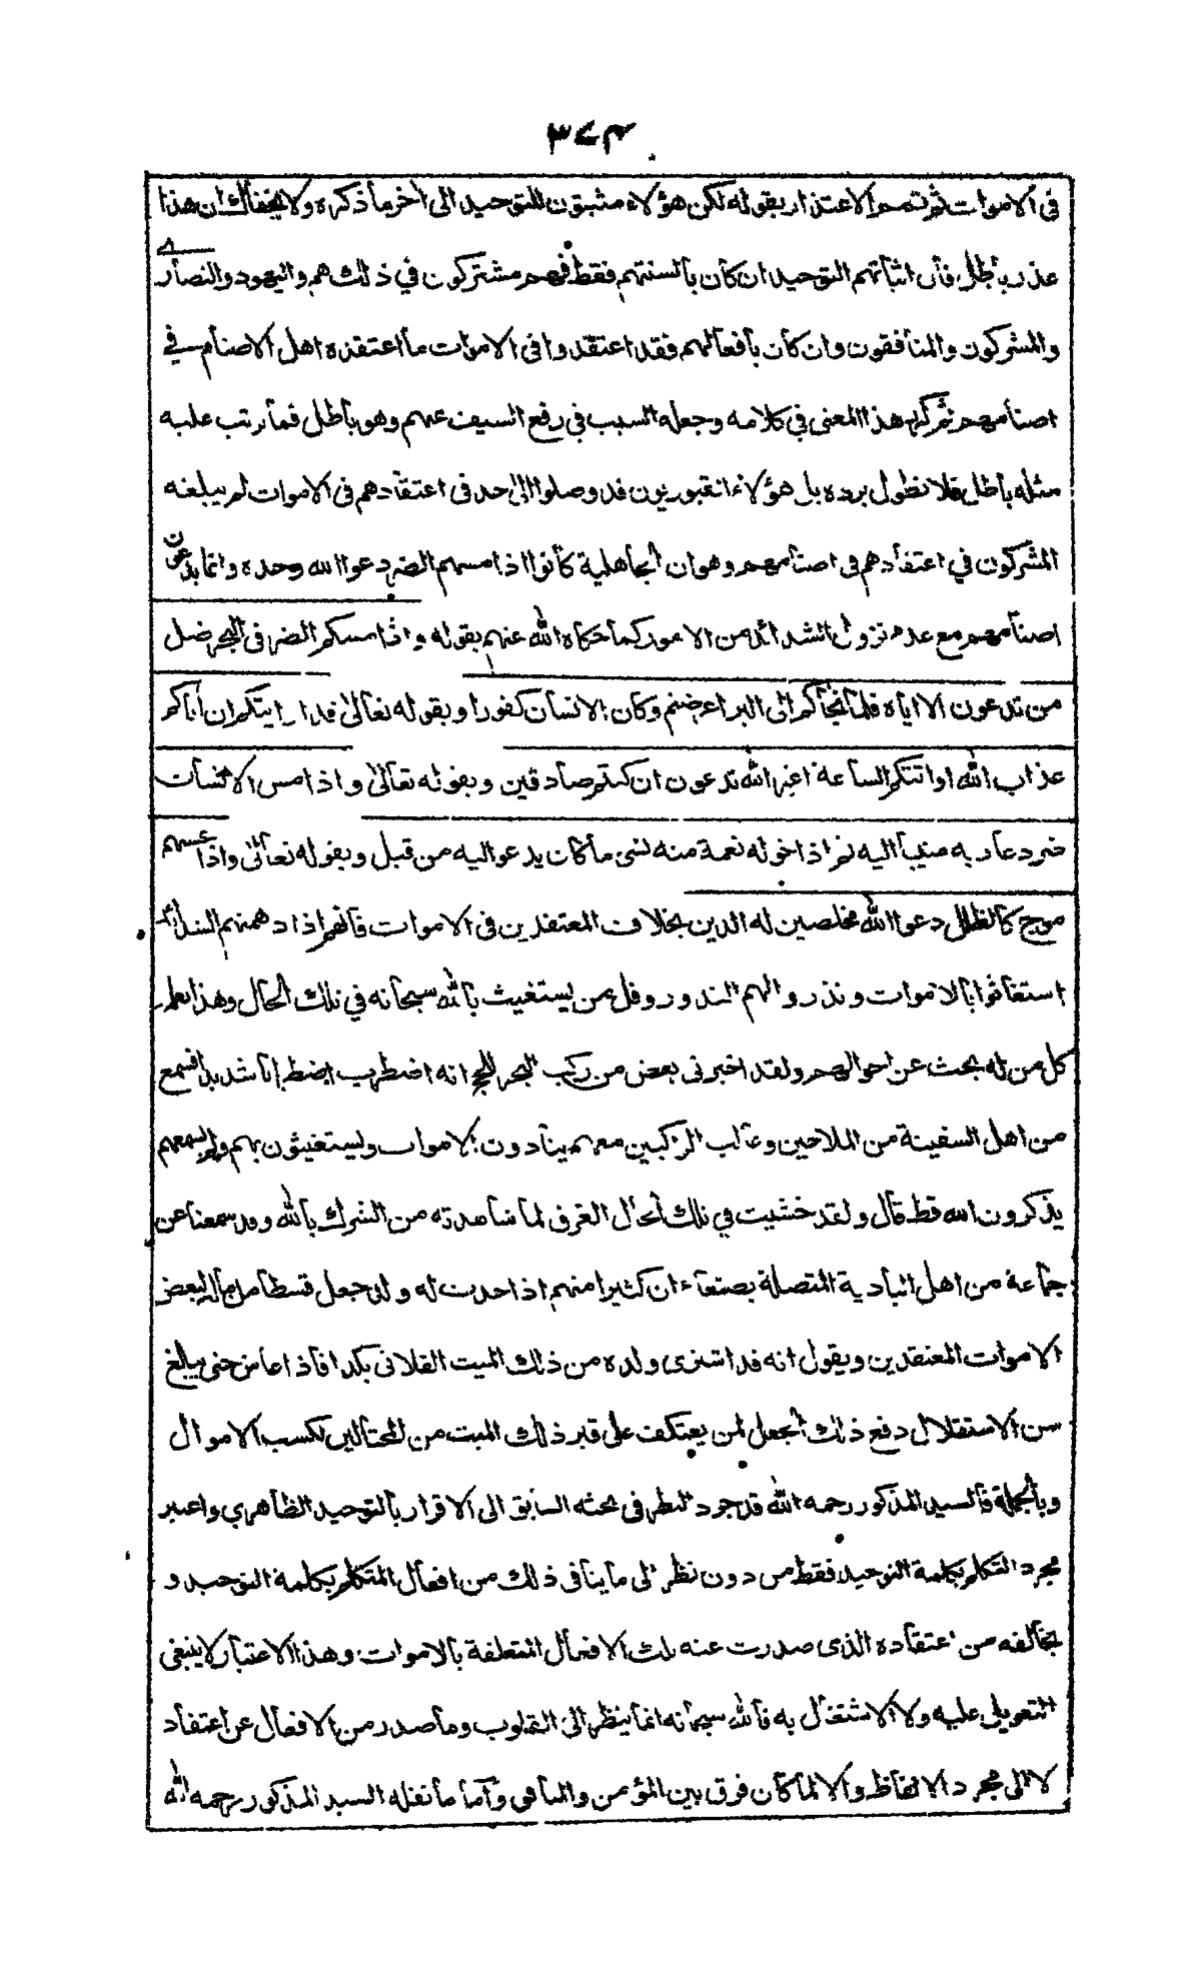 ٣٧٤
في الاموات ثم تمم الاعتذار بقوله لكن هؤلاء مثبتون للتوحيد الى أخر ما ذكره ولا يخفاك ان هذا
عذر باطل فان اثباتهم التوحيد ان كان بألسنتهم فقط فهم مشتركون في ذلك هم واليهود والنصارى
والمشركون والمنافقون وان كان بافعالهم فقد اعتقدوا في الاموات ما اعتقده اهل الاصنام في
اصنامهم ثم كرر هذا المعنى في كلامه وجعله السبب في رفع السيف عنهم وهو باطل فما رتب عليه
مثله باطل فلا نطول برده بل هؤلاء القبوريون قد وصلوا الى حد في اعتقادهم في الاموات لم يبلغه
المشركون في اعتقادهم في اصنامهم وهو ان الجاهلية كانوا اذا مسهم الضر دعوا الله وحده وانما يدعون
اصنامهم مع عدم نزول الشدائد من الامور كما حكاه الله عنهم بقوله واذا مسكم الضر في البحر ضل
من تدعون الا اياه فلما نجاكم الى البر اعرضتم وكان الانسان كفورا وبقوله تعالى قل ارايتكم ان اتاكم
عذاب الله او اتتكم الساعة اغير الله تدعون ان كنتم صادقين وبقوله تعالى واذا مس الانسان
ضر دعا ربه منيبا اليه ثم اذا خوله نعمة منه نسى ما كان يدعو اليه من قبل وبقوله تعالى واذا غشيهم
موج كالظلل دعوا الله مخلصين له الدين بخلاف المعتقدين في الاموات فانهم اذا دهمتهم الشدائد
استغاثوا بالاموات ونذروا لهم النذور وقل من يستغيث بالله سبحانه في تلك الحال وهذا يعلمه
كل من له بحث عن احوالهم ولقد اخبرني بعض من ركب البحر للحج انه اضطرب اضطرابا شديدا فسمع
من اهل السفينة من الملاحين وغالب الراكبين معهم ينادون الاموات ويستغيثون بهم ولم يسمعهم
يذكرون الله قط قال ولقد خشيت في تلك الحال الغرق لما شاهدته من الشرك بالله وقد سمعنا عن
جماعة من اهل البادية المتصلة بصنعاء ان كثيرا منهم اذا حدث له ولد جعل قسطا من ماله لبعض
الاموات المعتقدين ويقول انه قد اشترى ولده من ذلك الميت الفلاني بكذا فاذا عاش حتى يبلغ
سن الاستقلال دفع ذلك الجعل لمن يعتكف على قبر ذلك الميت من المحتالين لكسب الاموال
وبالجملة فالسيد المذكور رحمه الله قد جرد النظر في بحثه السابق الى الاقرار بالتوحيد الظاهري واعتبر
مجرد التكلم بكلمة التوحيد فقط من دون نظر الى ما ينافى ذلك من افعال المتكلم بكلمة التوحيد و
يخالفه من اعتقاده الذى صدرت عنه تلك الافعال المتعلقة بالاموات وهذا الاعتبار لا ينبغى
التعويل عليه ولا الاشتغال به فالله سبحانه انما ينظر الى القلوب وما صدر من الافعال عن اعتقاد
لا الى مجرد الالفاظ والا لما كان فرق بين المؤمن والمنافق وأما ما نقله السيد المذكور رحمه الله